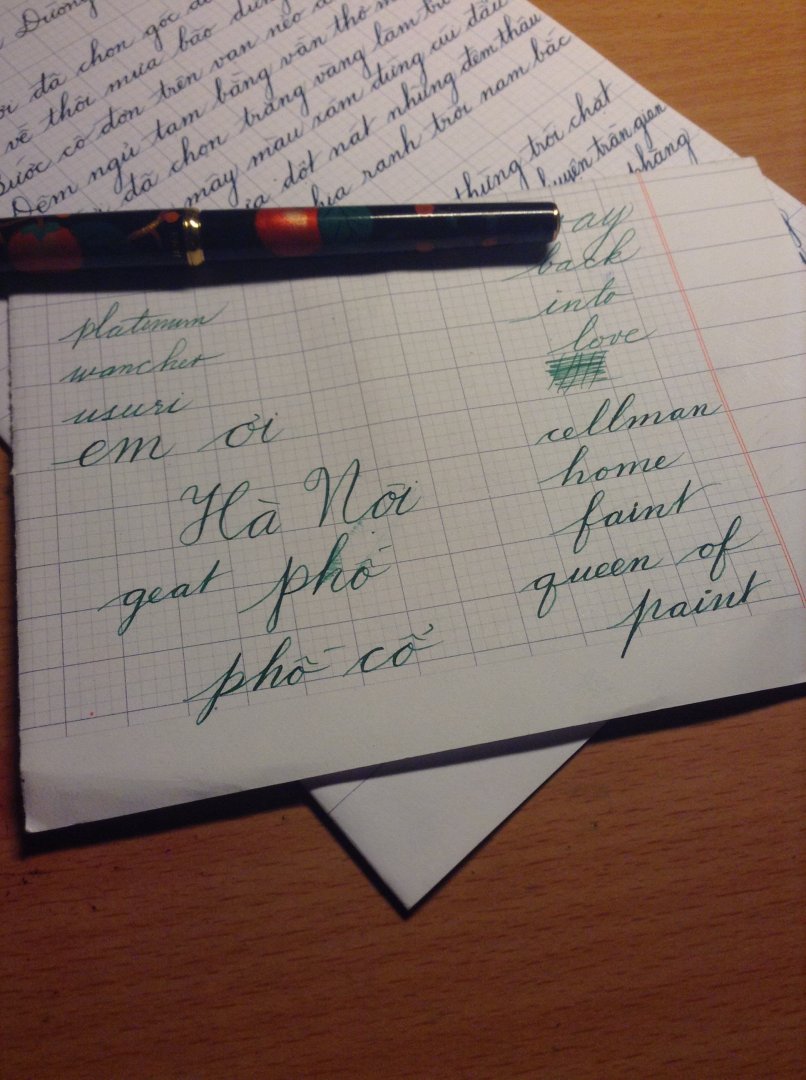 Dương
đã chọn góc
về thôi mưa bão
Bước cô đơn trên vạn nẻo
Đêm ngủ tam bằng vần thơ
đã chọn trăng vàng làm
mây màu rám đứng cúi đầu
dột nát những đêm thâu
ranh trời nam bắc
thừng trói chặt
trần gian
phăng
platinum
wancher
usuri
em ơi
Hà Nội
geat phố
phố cổ
back
into
love
cellman
home
faint
queen of
paint